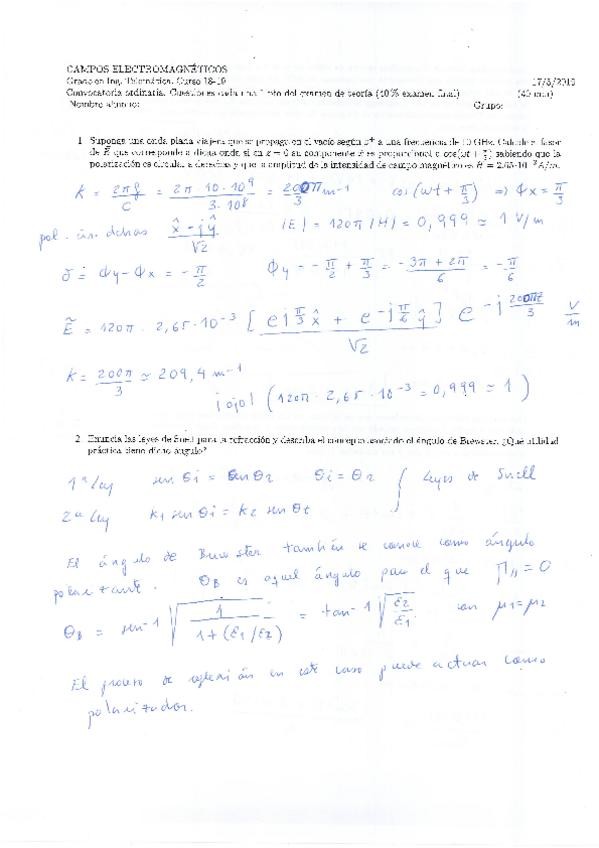 CAMPOS ELECTROMAGNÉTICOS
Grado en Ing. Telemática. Curso 18-19 17/5/2019
Convocatoria ordinaria. Cuestiones del examen de teoría (40% examen final) (40 min)
Nombre alumno: Grupo:
1. Suponga una onda plana viajera que se propaga en el vacío según z⁺ a una frecuencia de 10 GHz. Calcule el fasor
de E que corresponde a dicha onda si en z = 0 su componente x̂ es proporcional a cos(ωt + π/3) sabiendo que la
polarización es circular a derechas y que la amplitud de la intensidad de campo magnético es H = 2,65·10⁻³ A/m.
K = 2πf/c = 2π 10·10⁹/3·10⁸ = 200π/3 m⁻¹ cos(ωt + π/3) ⇒ ϕx = π/3
pol. cir. dchas (x̂ - jŷ)/√2 |E| = 120π |H| = 0,999 ≃ 1 V/m
δ = ϕy - ϕx = -π/2 ϕy = -π/2 + π/3 = (-3π + 2π)/6 = -π/6
Ẽ = 120π · 2,65·10⁻³ [e^{jπ/3} x̂ + e^{-jπ/6} ŷ]/√2 e^{-j200πz/3} V/m
K = 200π/3 ≃ 209,4 m⁻¹
¡ojo! (120π · 2,65·10⁻³ = 0,999 ≃ 1)
2. Enuncia las leyes de Snell para la refracción y describa el concepto asociado el ángulo de Brewster. ¿Qué utilidad
práctica tiene dicho ángulo?
1ª ley sen θi = sen θr θi = θr } Leyes de Snell
2ª ley k₁ sen θi = k₂ sen θt
El ángulo de Brewster también se conoce como ángulo
polarizante. θB es aquel ángulo para el que Γ// = 0
θB = sen⁻¹ √(1/(1+(ε₁/ε₂))) = tan⁻¹ √(ε₂/ε₁) con μ₁=μ₂
El proceso de reflexión en este caso puede actuar como
polarizador.